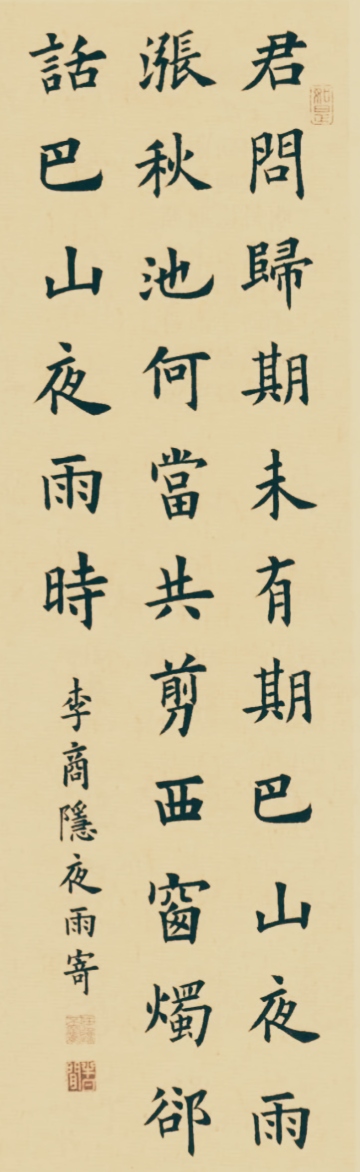 君問歸期未有期巴山夜雨
漲秋池何當共剪西窗燭郤
話巴山夜雨時
李商隱夜雨寄